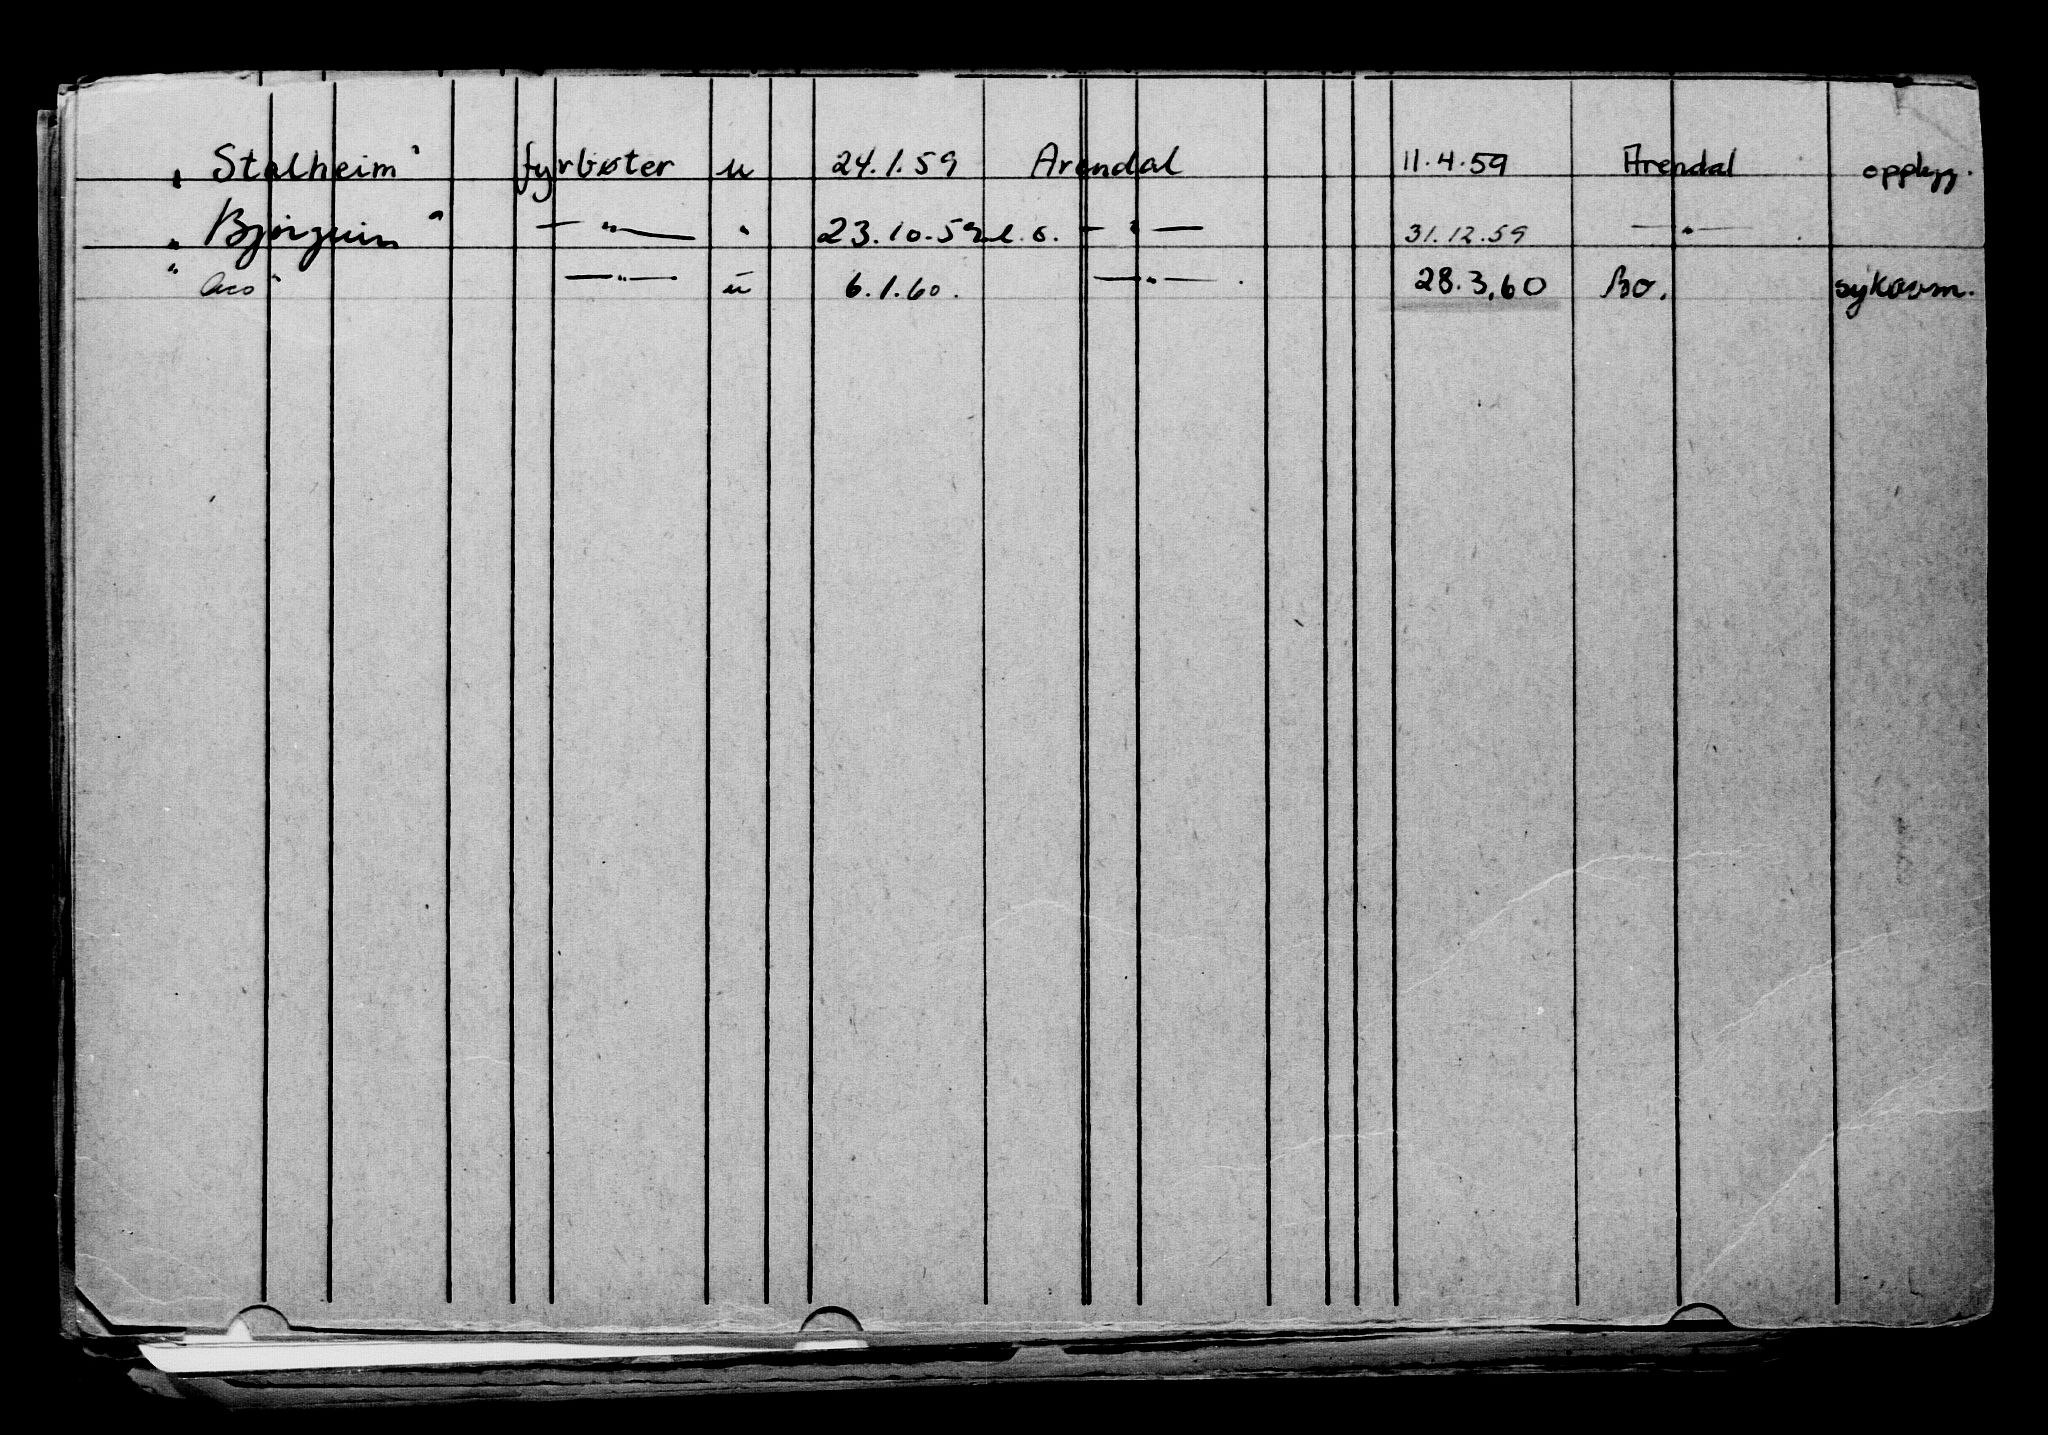 "Stalheim" fyrbøter u 24.1.59 Arendal 11.4.59 Arendal opplegg.
"Bjørgvin" — " — " 23.10.59 — " — 31.12.59 — " — .
" — " — u 6.1.60. — " — . 28.3.60 Bo. sykdom.